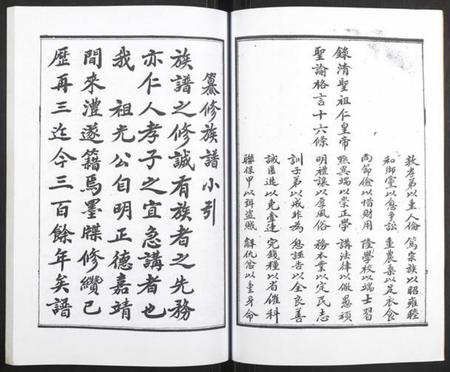 錄清聖祖仁皇帝
聖諭格言十六條
敦孝弟以重人倫 篤宗族以昭雍睦
和鄉黨以息爭訟 重農桑以足衣食
尚節儉以惜財用 隆學校以端士習
黜異端以崇正學 講法律以儆愚頑
明禮讓以厚風俗 務本業以定民志
訓子弟以戒非為 息誣告以全良善
誡匿逃以免牽連 完錢糧以省催科
聯保甲以弭盜賊 解仇忿以重身命
纂修族譜小引
族譜之修誠有族者之先務
亦仁人孝子之宜急講者也
我 祖光公自明正德嘉靖
間來澧遂籍焉墨牒修纘已
歷再三迄今三百餘年矣譜